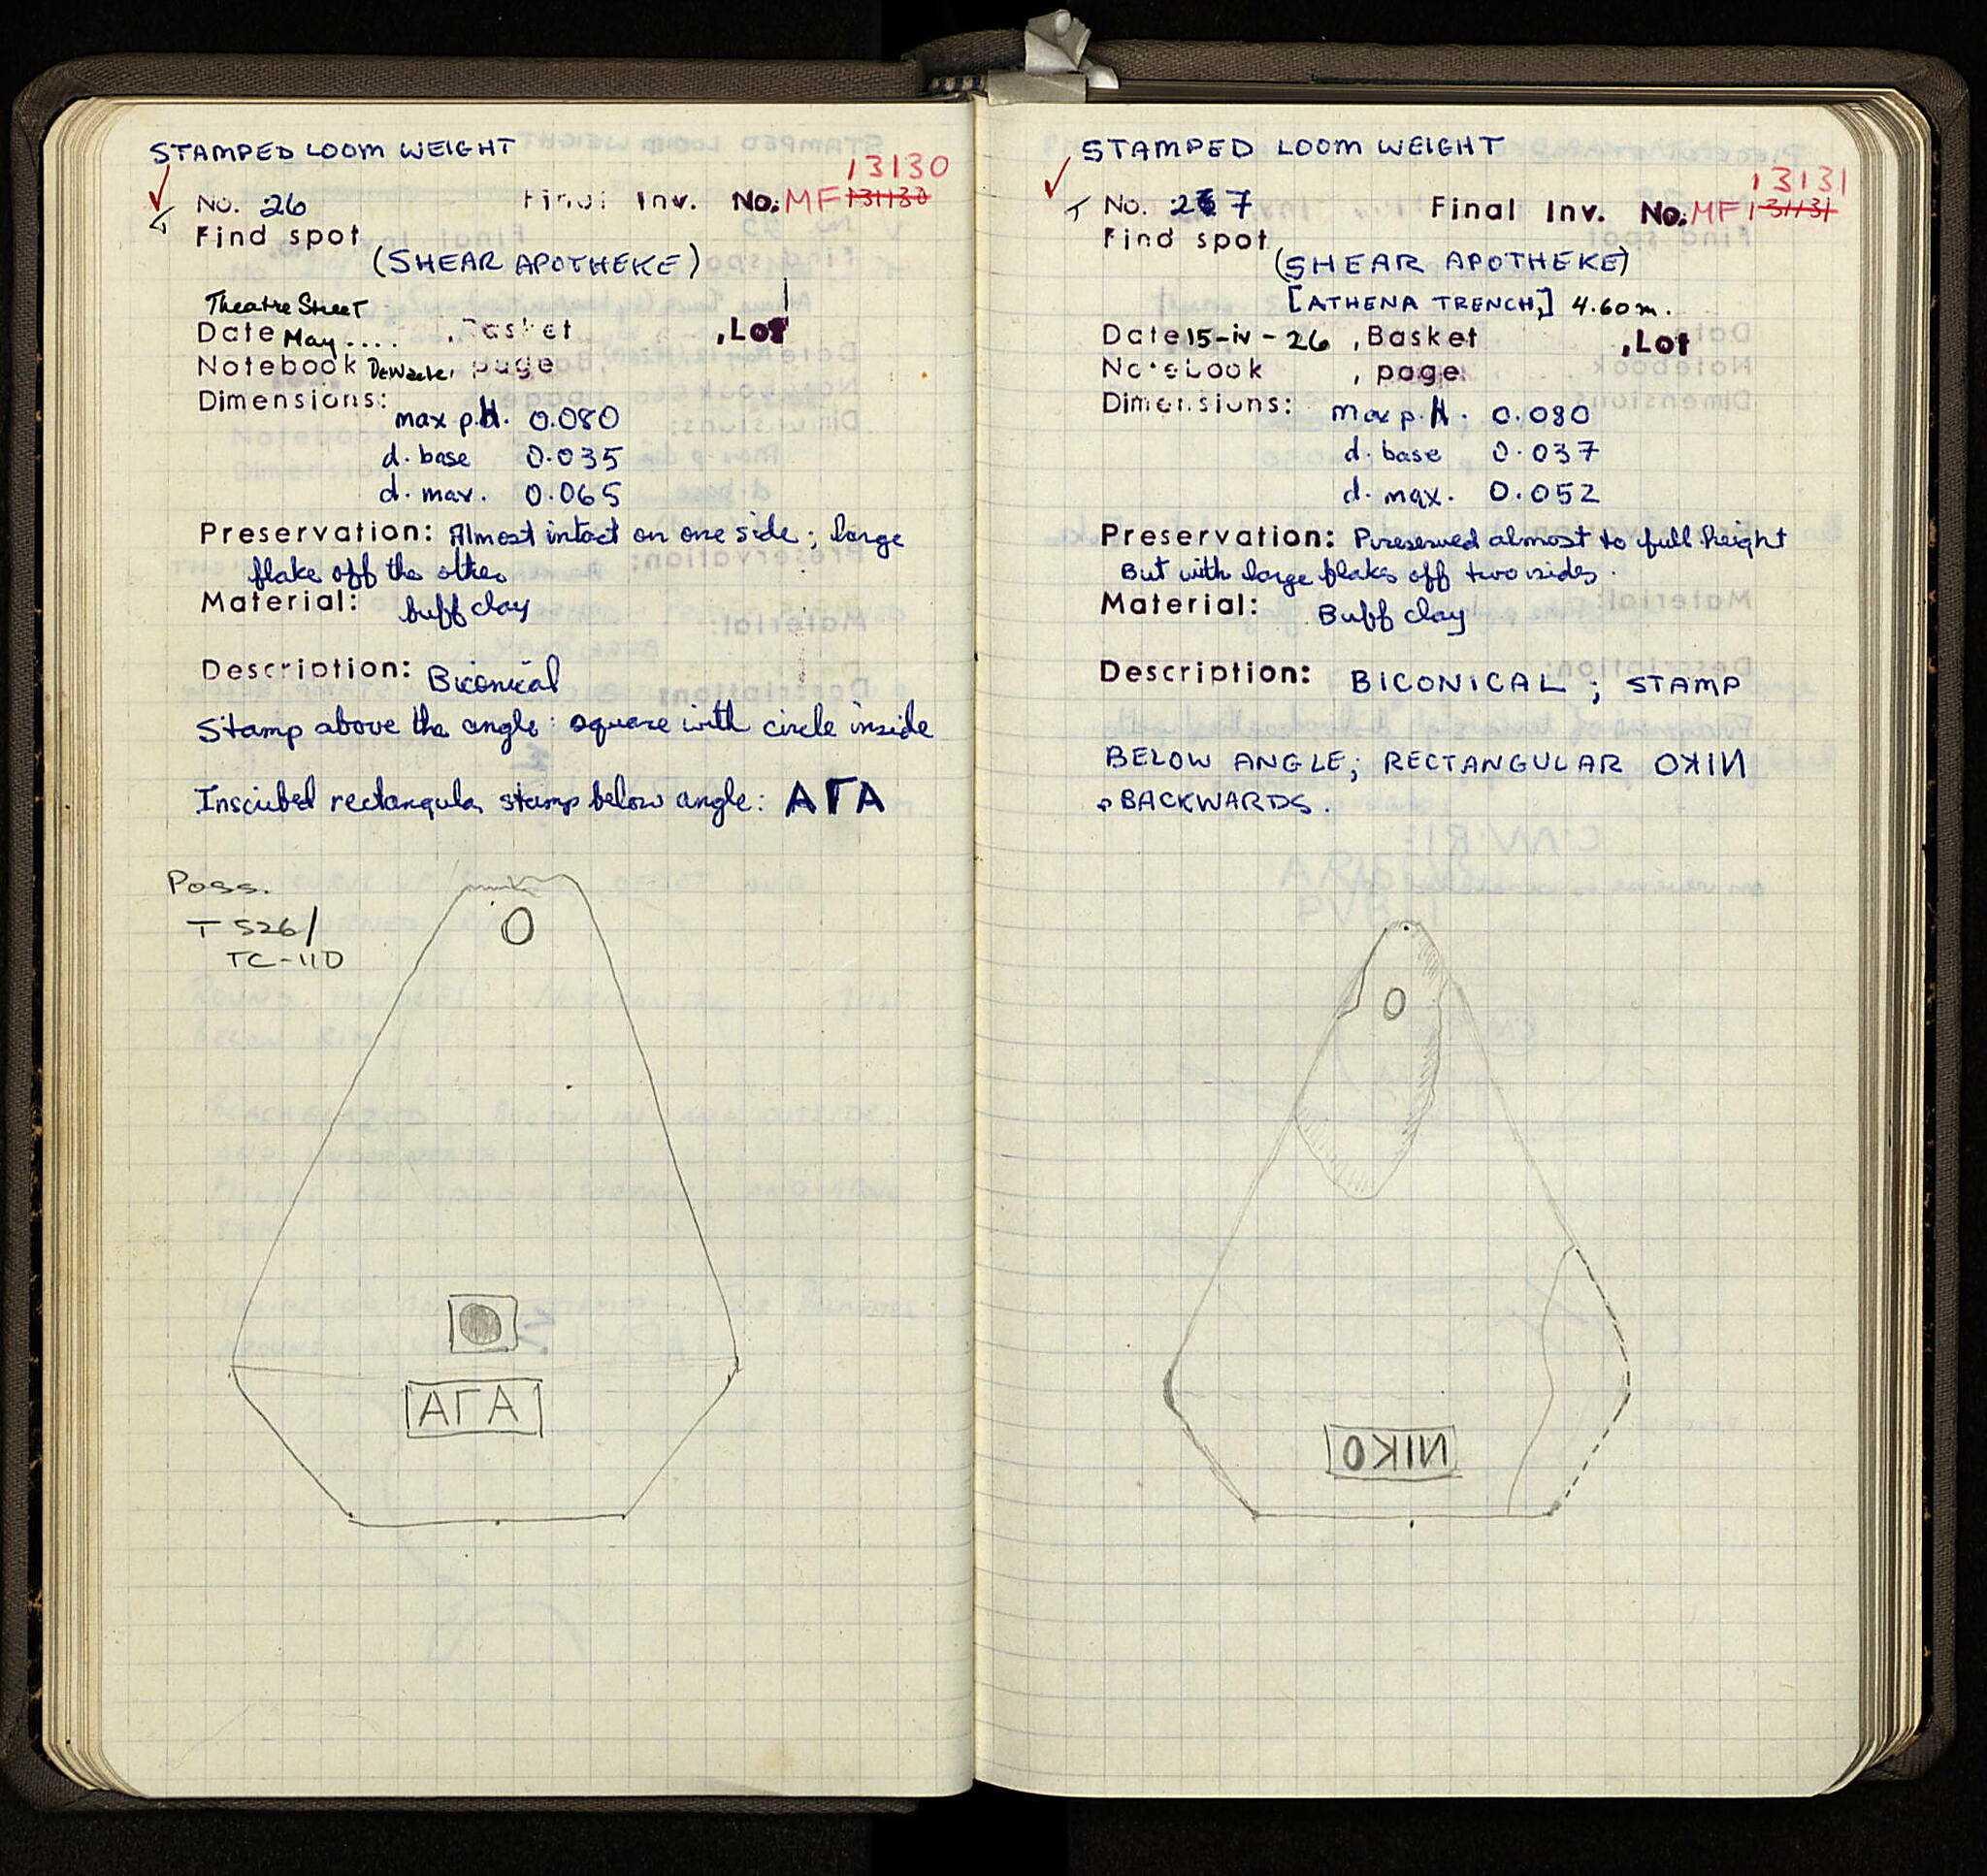 STAMPED LOOM WEIGHT
13130
No. 26 Final Inv. No. MF 131130
Find spot
(SHEAR APOTHEKE)
Theatre Street
Date May .... , Basket , Lot
Notebook DeWaele, page
Dimensions:
max p.H. 0.080
d. base 0.035
d. max. 0.065
Preservation: Almost intact on one side; large
flake off the other
Material: buff clay
Description: Biconical
Stamp above the angle: square with circle inside
Inscribed rectangular stamp below angle: ΑΓΑ
Poss.
T 526/
TC-110
ΑΓΑ
STAMPED LOOM WEIGHT
13131
No. 27 Final Inv. No. MF 131131
Find spot
(SHEAR APOTHEKE)
[ATHENA TRENCH,] 4.60 m.
Date 15-iv-26 , Basket , Lot
Notebook , page
Dimensions: max p.H. 0.080
d. base 0.037
d. max. 0.052
Preservation: Preserved almost to full height
But with large flakes off two sides.
Material: Buff clay
Description: BICONICAL; STAMP
BELOW ANGLE; RECTANGULAR OKIN
BACKWARDS.
OKIN